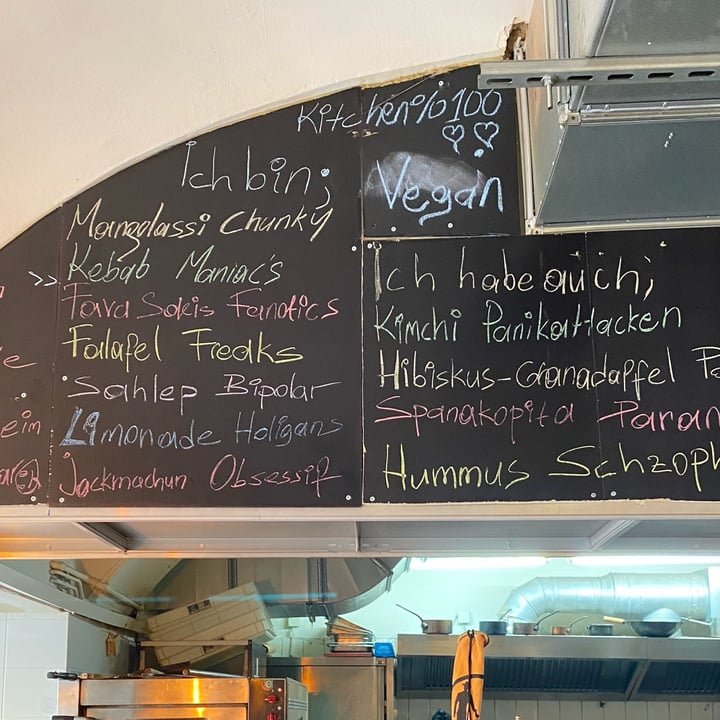 Kitchen%100
Vegan
Ich bin;
Mangolassi Chunky
>> Kebab Maniac's
Fava Sakis Fanatics
Falafel Freaks
Sahlep Bipolar
Limonade Holigans
Jackmachun Obsessif
Ich habe auch;
Kimchi Panikattacken
Hibiskus-Granadapfel
Spanakopita Paran
Hummus Schzoph
eim